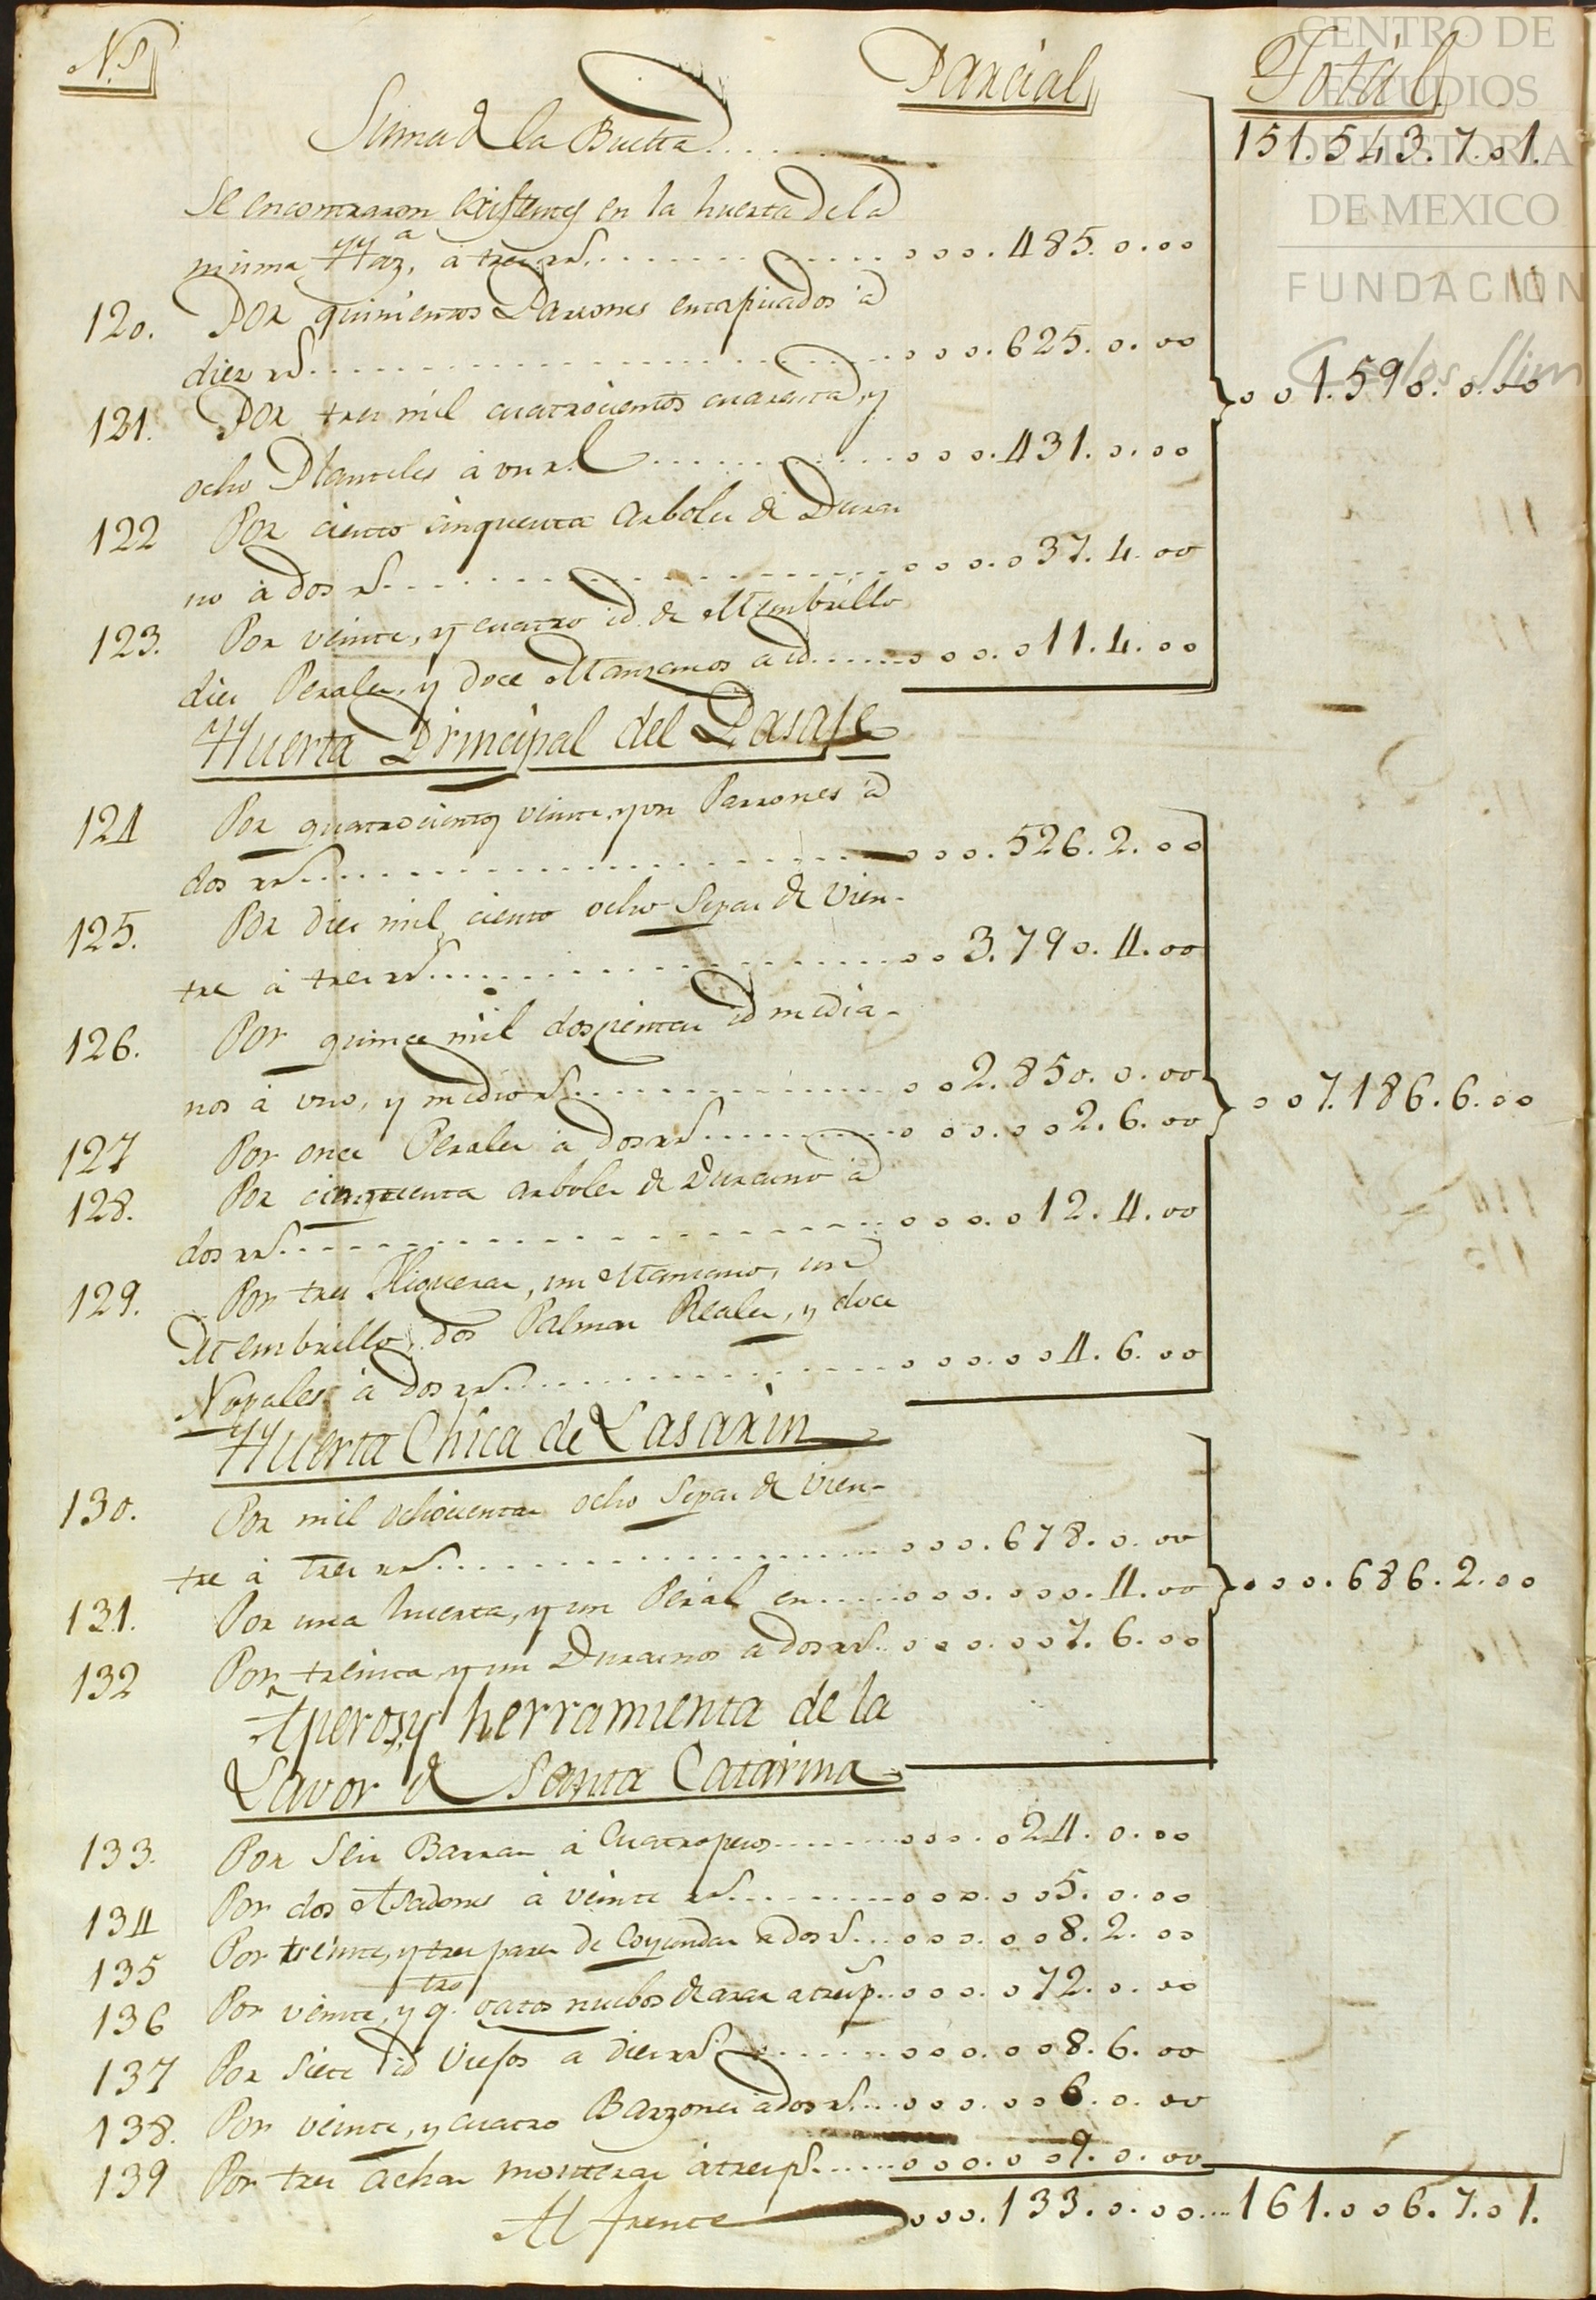 N.s Parcial Total
Suma de la Buelta.... 151.543.7.01.
Se encontraron existentes en la huerta de la
misma Haz.a a tres rr.s.... 000.485.0.00
120. Por quinientos Parrones encapirados à
diez rr.s.... 000.625.0.00
121. Por tres mil cuatrocientos cuarenta, y
ocho Planteles à un r.l.... 000.431.0.00
001.590.0.00
122 Por ciento cinquenta arboles de Duraz
no à dos r.s.... 000.037.4.00
123. Por veinte, y cuatro id. de Membrillo
diez Perales, y doce Manzanos a id.... 000.011.4.00
Huerta Principal del Pasaje
124 Por quatrocientos veinte, y un Parrones à
dos rr.s.... 000.526.2.00
125. Por diez mil ciento ocho Sepas de Vien-
tre à tres rr.s.... 003.790.4.00
126. Por quince mil doscientas id media-
nos à uno, y medio r.s.... 002.850.0.00
007.186.6.00
127 Por once Perales à dos rr.s.... 000.002.6.00
128. Por cinquenta arboles de Durazno à
dos rr.s.... 000.012.4.00
129. Por tres Higueras, un Manzano, un
Membrillo, dos Palmas Reales, y doce
Nopales à dos rr.s.... 000.004.6.00
Huerta Chica de Lasarin
130. Por mil ochocientas ocho Sepas de Vien-
tre à tres rr.s.... 000.678.0.00
131. Por una huerta, y un Peral en.... 000.000.4.00
000.686.2.00
132 Por treinta, y un Duraznos a dos rr.s.. 000.007.6.00
Aperos, y herramienta de la
Lavor de Santa Catarina
133. Por Seis Barras à Cuatro pesos.... 000.024.0.00
134 Por dos Asadores à veinte rr.s.... 000.005.0.00
135 Por treinta, y tres pares de Coyundas a dos r.s... 000.008.2.00
136 Por veinte, y q.tro vacos nuebos de arar a tres p.s.. 000.072.0.00
137 Por Siete id Viejos a diez rr.s.... 000.008.6.00
138. Por veinte, y cuatro Barzones à dos r.s.... 000.006.0.00
139 Por tres achas monteras à tres p.s.... 000.009.0.00
Al frente 000.133.0.00.... 161.006.7.01.
CENTRO DE
ESTUDIOS
DE HISTORIA
DE MEXICO
FUNDACION
Carlos Slim